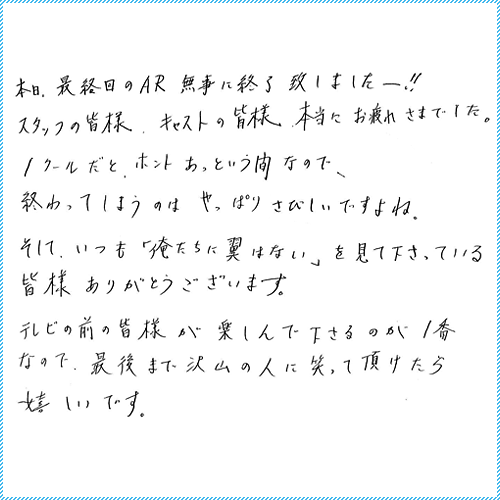 本日、最終回のAR 無事に終了 致しましたー!!
スタッフの皆様、キャストの皆様、本当にお疲れさまでした。
1クールだと、ホントあっという間なので、
終わってしまうのは やっぱり さびしいですよね。
そして、いつも「俺たちに翼はない」を見て下さっている
皆様 ありがとうございます。
テレビの前の皆様が 楽しんで下さるのが 1番
なので、最後まで沢山の人に笑って頂けたら
嬉しいです。